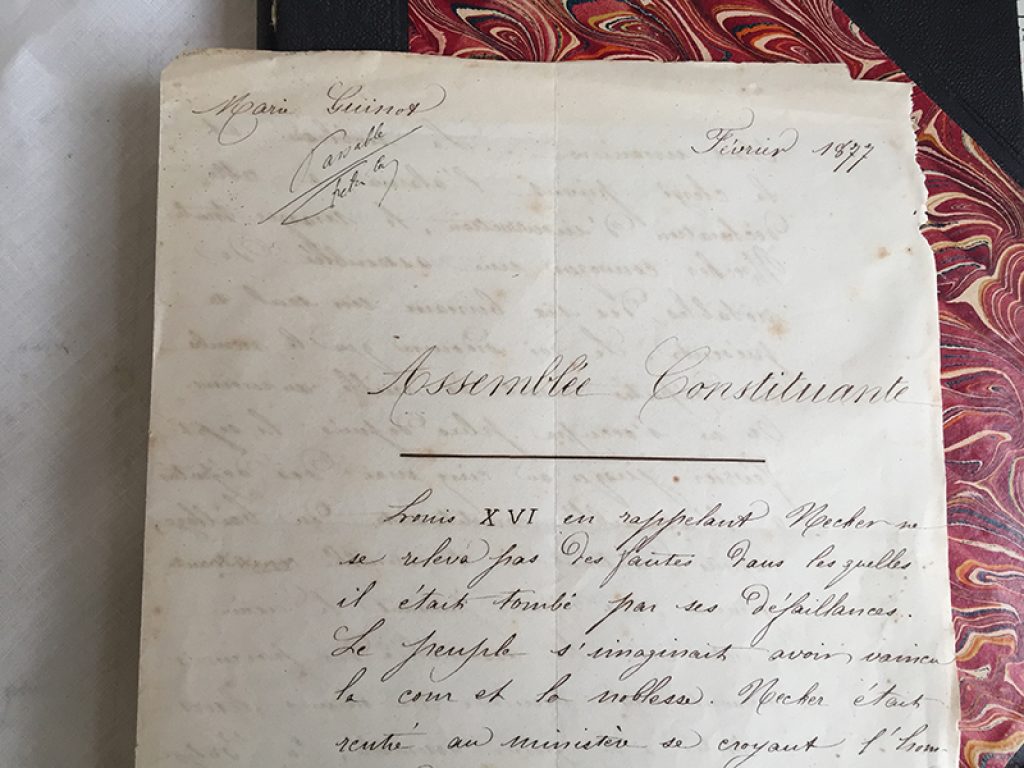 Marie Guinot
Février 1877
Passable
Assemblée Constituante
Louis XVI en rappelant Necker ne
se releva pas des fautes dans lesquelles
il était tombé par ses défaillances.
Le peuple s'imaginait avoir vaincu
la cour et la noblesse. Necker était
rentré au ministère se croyant l'hom-